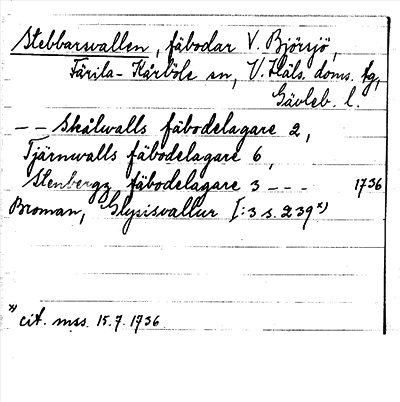 Stebbarvallen, fäbodar V. Björsjö,
Färila-Kårböle sn, V. Häls. doms. fg,
Gävleb. l.
– – Skålwalls fäbodelagare 2,
Tjärnwalls fäbodelagare 6,
Stenbergz fäbodelagare 3 – – – 1736
Broman, Glysisvallur I:3 s. 239 x)
x) cit. mss. 15.7.1736